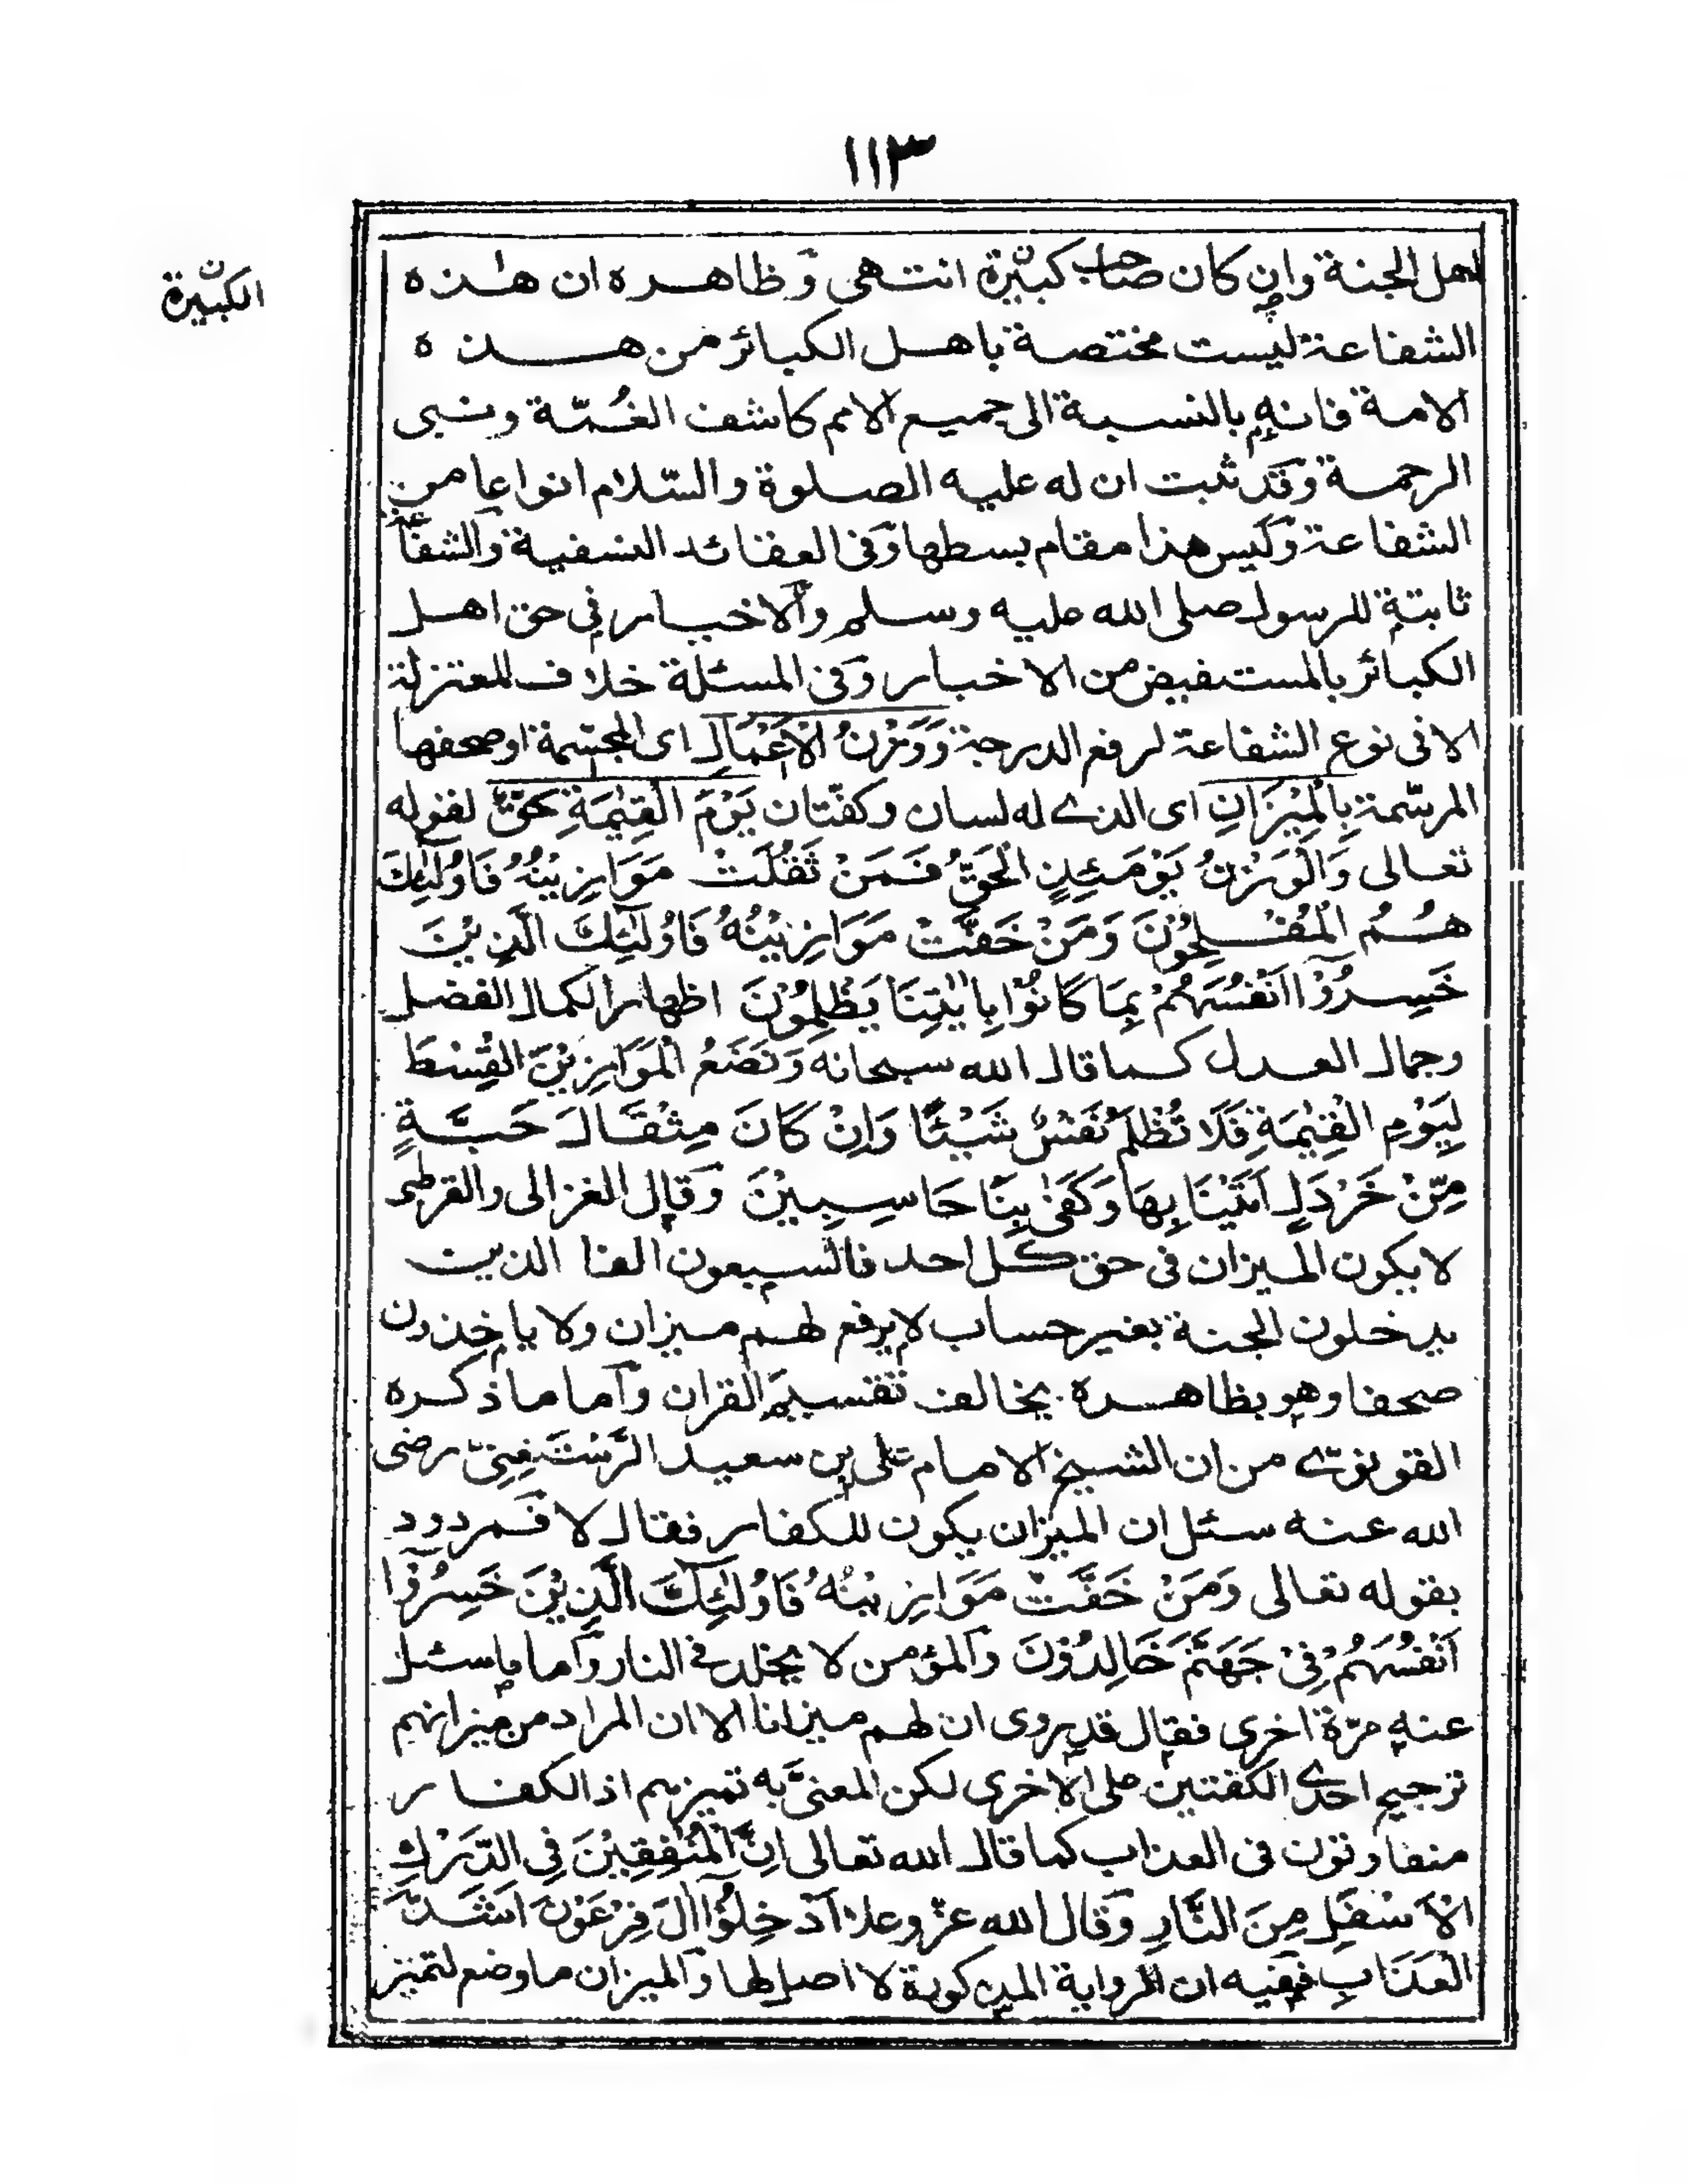 ١١٣
اهل الجنة وان كان صاحب كبيرة انتهى وظاهره ان هٰذه
الكبيرة
الشفاعة ليست مختصة باهل الكبائر من هذه
الامة فانه بالنسبة الى جميع الامم كاشف الغُمّة ونبى
الرحمة وقد ثبت ان له عليه الصلوة والسّلام انواعا من
الشفاعة وليس هذا مقام بسطها وفى العقائد النسفية والشفاعة
ثابتة للرسول صلى الله عليه وسلم والاخبار فى حق اهل
الكبائر بالمستفيض من الاخبار وفى المسئلة خلاف للمعتزلة
الا فى نوع الشفاعة لرفع الدرجة وَوَزْنُ الْاَعْمَالِ اى المجسّمة او صحفها
المرسّمة بِالْمِيْزَانِ اى الذے له لسان وكفّتان يَوْمَ الْقِيٰمَةِ حَقٌّ لقوله
تعالى وَالْوَزْنُ يَوْمَئِذِنِ الْحَقُّ فَمَنْ ثَقُلَتْ مَوَازِيْنُهٗ فَاُولٰٓئِكَ
هُمُ الْمُفْلِحُوْنَ وَمَنْ خَفَّتْ مَوَازِيْنُهٗ فَاُولٰٓئِكَ الَّذِيْنَ
خَسِرُوْٓا اَنْفُسَهُمْ بِمَا كَانُوْا بِاٰيٰتِنَا يَظْلِمُوْنَ اظهارا لكمال الفضل
وجمال العدل كما قال الله سبحانه وَنَضَعُ الْمَوَازِيْنَ الْقِسْطَ
لِيَوْمِ الْقِيٰمَةِ فَلَا تُظْلَمُ نَفْسٌ شَيْئًا وَاِنْ كَانَ مِثْقَالَ حَبَّةٍ
مِّنْ خَرْدَلٍ اَتَيْنَا بِهَا وَكَفٰى بِنَا حَاسِبِيْنَ وقال الغزالى والقرطبى
لا يكون الميزان فى حق كل احد فالسبعون الفا الذين
يدخلون الجنة بغير حساب لا يرفع لهم ميزان ولا ياخذون
صحفا وهو بظاهره يخالف تقسيم القران واما ما ذكره
القونوىّ من ان الشيخ الامام على بن سعيد الرَّسْتَغِنىّ رضى
الله عنه سئل ان الميزان يكون للكفار فقال لا فمردود
بقوله تعالى وَمَنْ خَفَّتْ مَوَازِيْنُهٗ فَاُولٰٓئِكَ الَّذِيْنَ خَسِرُوْٓا
اَنْفُسَهُمْ فِىْ جَهَنَّمَ خَالِدُوْنَ والمؤمن لا يخلد فى النار واما ما سئل
عنه مرّة اخرى فقال قد يروى ان لهم ميزانا الا ان المراد من ميزانهم
ترجيح احدے الكفتين على الاخرى لكن المعنىّ به تميزهم اذ الكفار
متفاوتون فى العذاب كما قال الله تعالى اِنَّ الْمُنٰفِقِيْنَ فِى الدَّرْكِ
الْاَسْفَلِ مِنَ النَّارِ وقال الله عزّ وعلا اَدْخِلُوْٓا اٰلَ فِرْعَوْنَ اَشَدَّ
الْعَذَابِ ففيه ان الرواية المذكورة لا اصل لها والميزان ما وضع لتميز